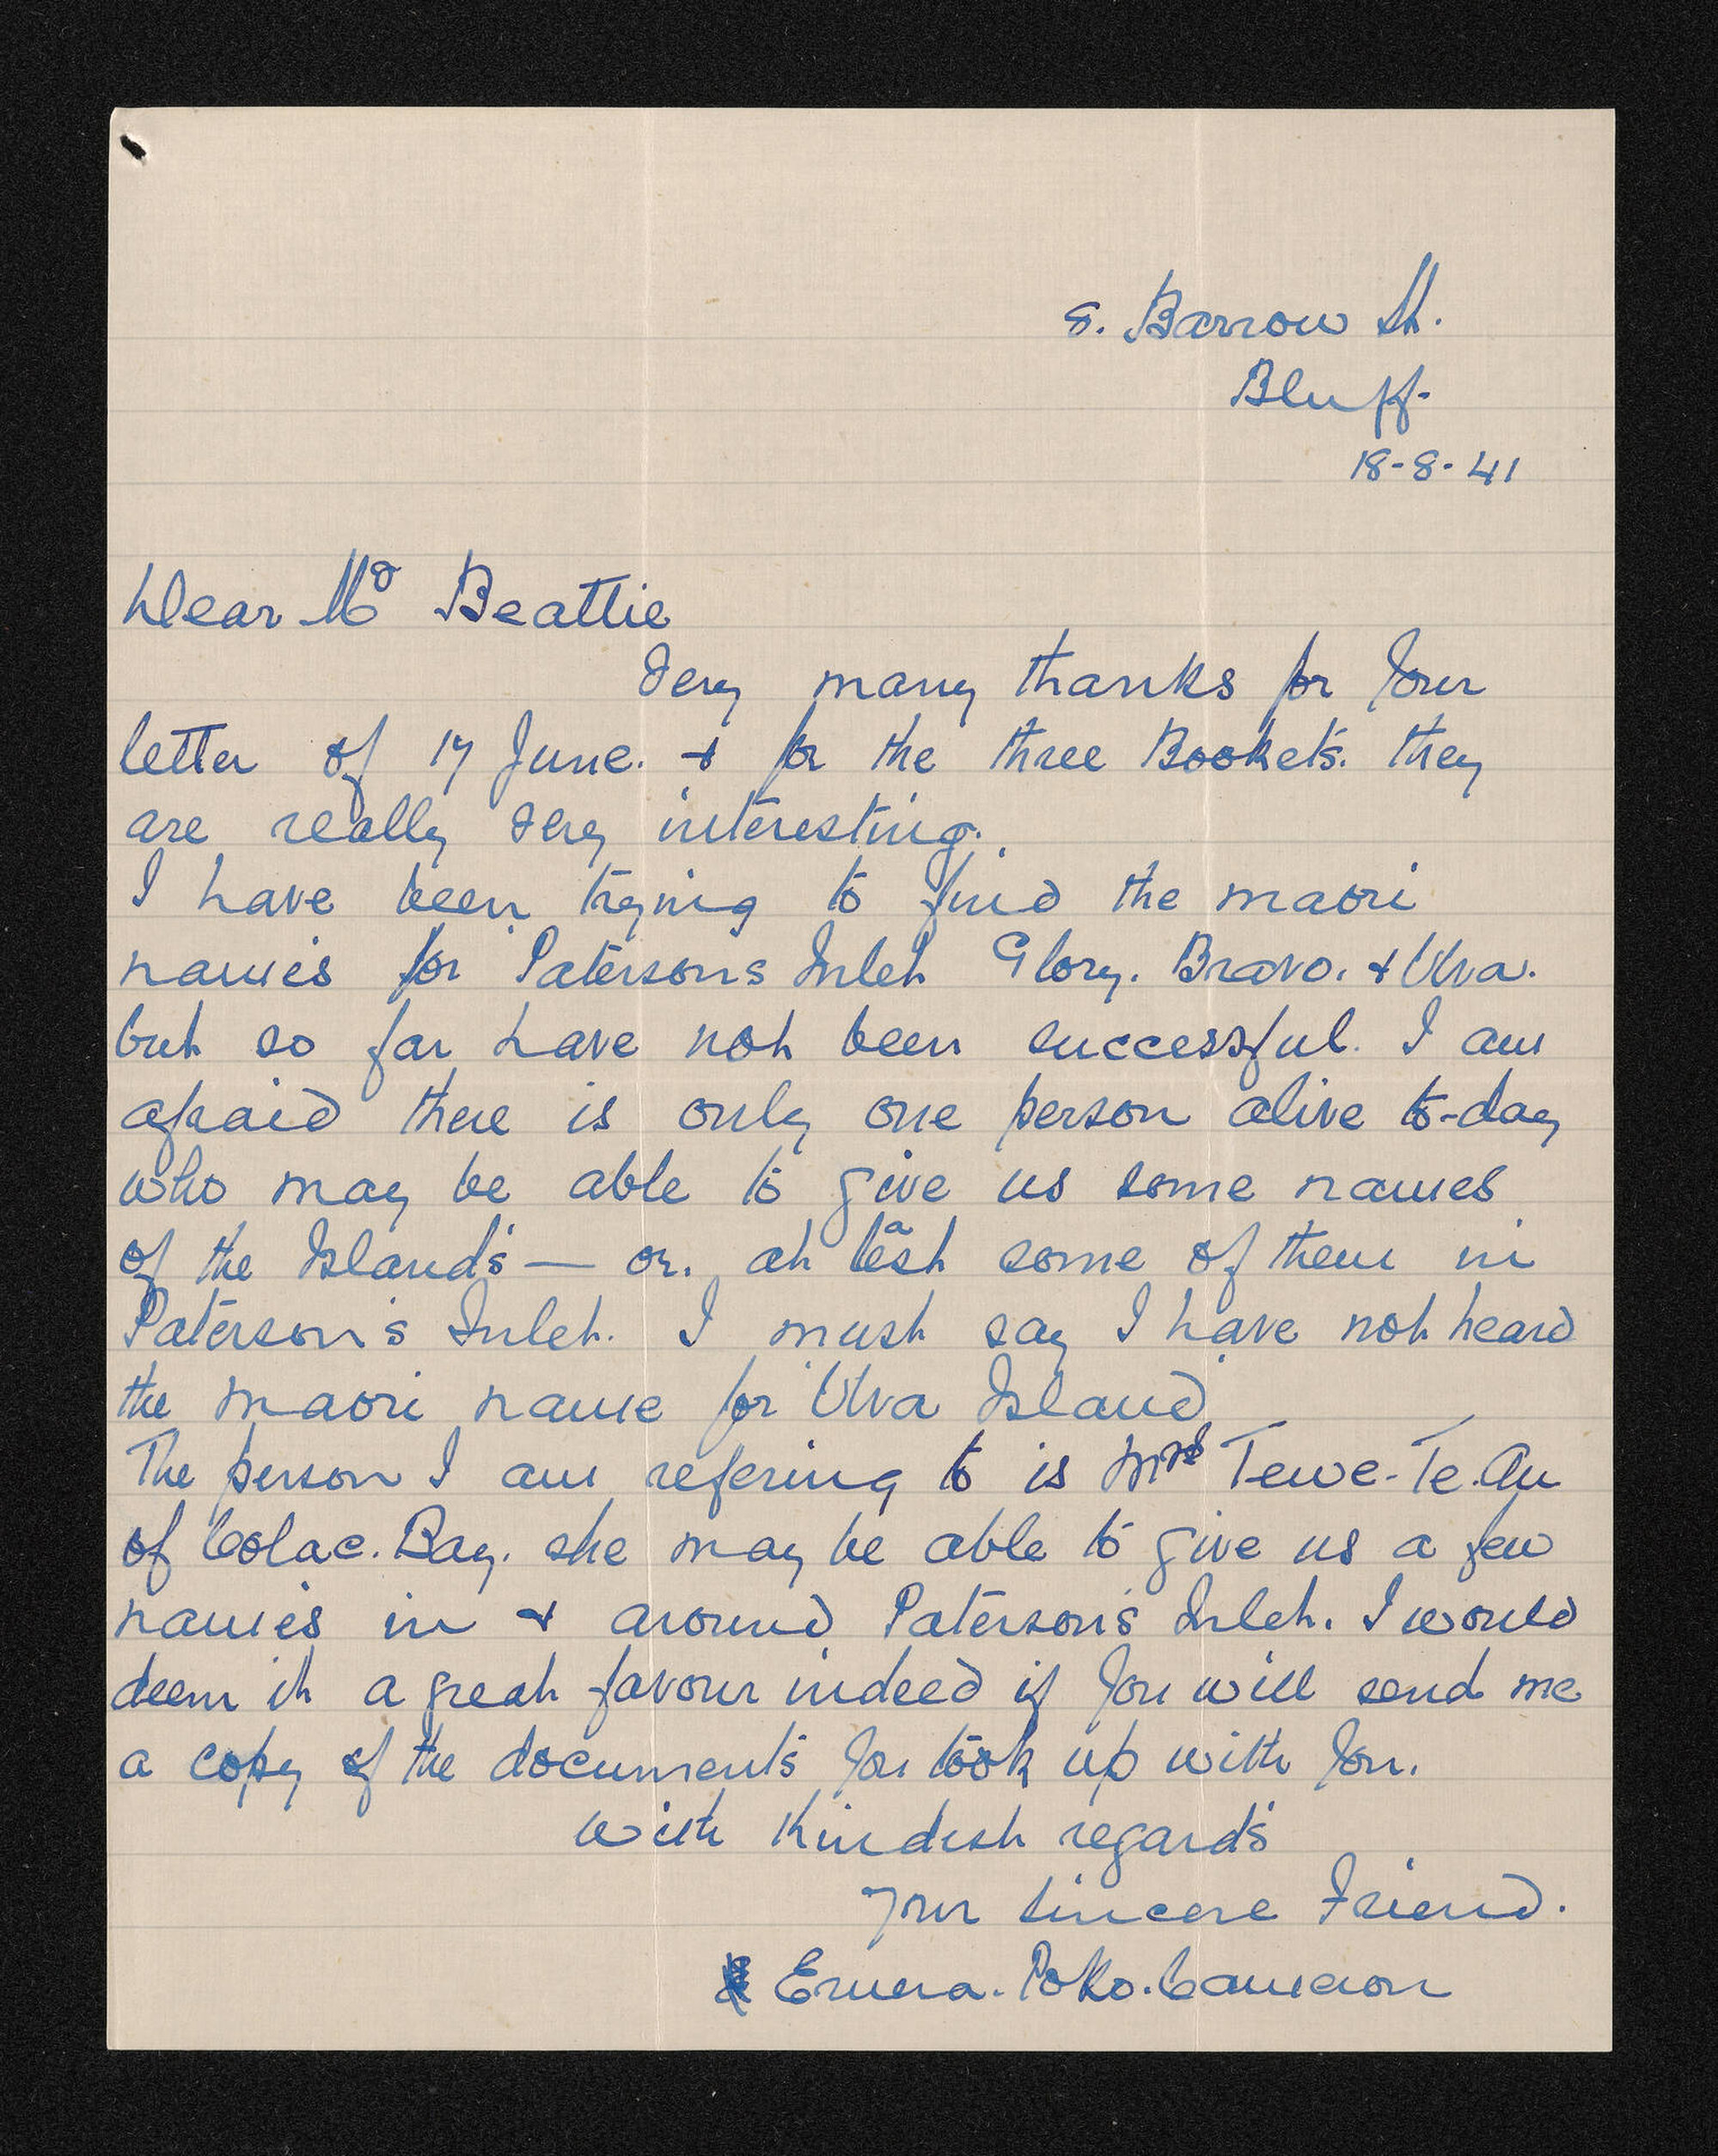 8. Barrow St.
Bluff.
18-8-41
Dear Mr Beattie
Very many thanks for Your
letter of 17 June. & for the three Bookets. they
are really very interesting.
I have been trying to find the maori
names for Patersons Inlet Glory. Bravo. & Ulva.
but so far have not been successful. I am
afraid there is only one person alive to-day
who may be able to give us some names
of the Islands — or. at least some of them in
Paterson's Inlet. I must say I have not heard
the maori name for Ulva Island
The person I am refering to is Mrs Tewe-Te.Au
of Colac. Bay. she may be able to give us a few
names in & around Paterson's Inlet. I would
deem it a great favour indeed if You will send me
a copy of the documents You took up with You.
With Kindest regards
Your Sincere Friend.
Eruera. Poko. Cameron